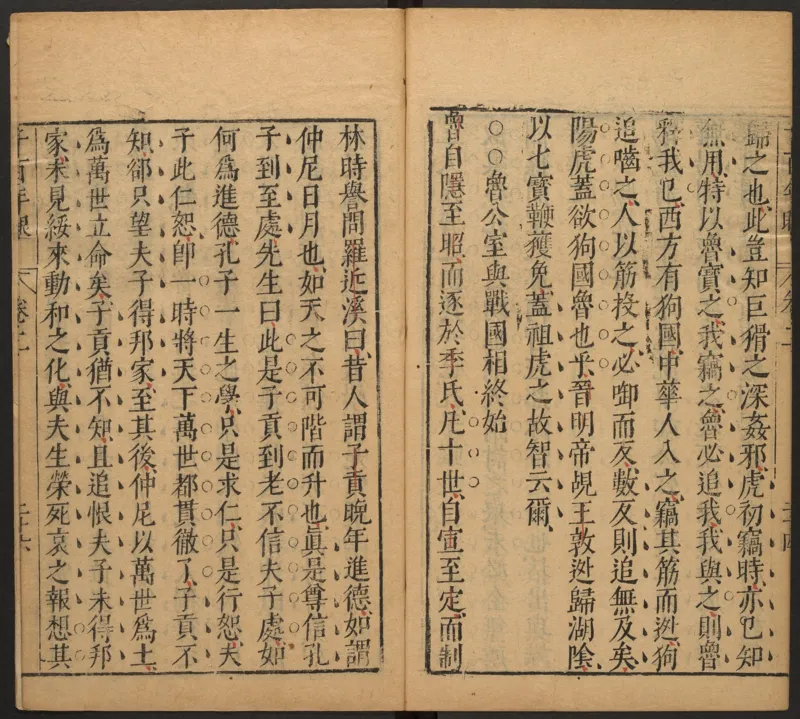 歸之也此豈知巨猾之深姦邪虎初竊時亦已知
無用特以魯寶之我竊之魯必追我我與之則魯
釋我已西方有狗國中華人入之竊其筯而迯狗
追嚙之人以筯投之必啣而反數反則追無及矣
陽虎蓋欲狗國魯也乎晉明帝覘王敦迯歸湖陰
以七寶鞭獲免蓋祖虎之故智云爾
○○魯公室與戰國相終始
魯自隱至昭而逐於季氏凡十世自宣至定而制
林時譽問羅近溪曰昔人謂子貢晚年進德如謂
仲尼日月也如天之不可階而升也眞是尊信孔
子到至處先生曰此是子貢到老不信夫子處如
何爲進德孔子一生之學只是求仁只是行恕夫
子此仁恕卽一時將天下萬世都貫徹了子貢不
知卻只望夫子得邦家至其後仲尼以萬世爲土
爲萬世立命矣子貢猶不知且追恨夫子未得邦
家未見綏來動和之化與夫生榮死哀之報想其
卷十二
二十六